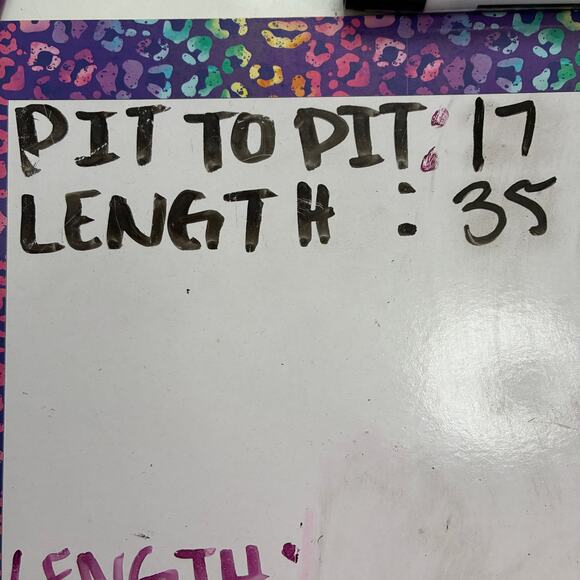 PIT TO PIT: 17
LENGTH : 35
LENGTH: